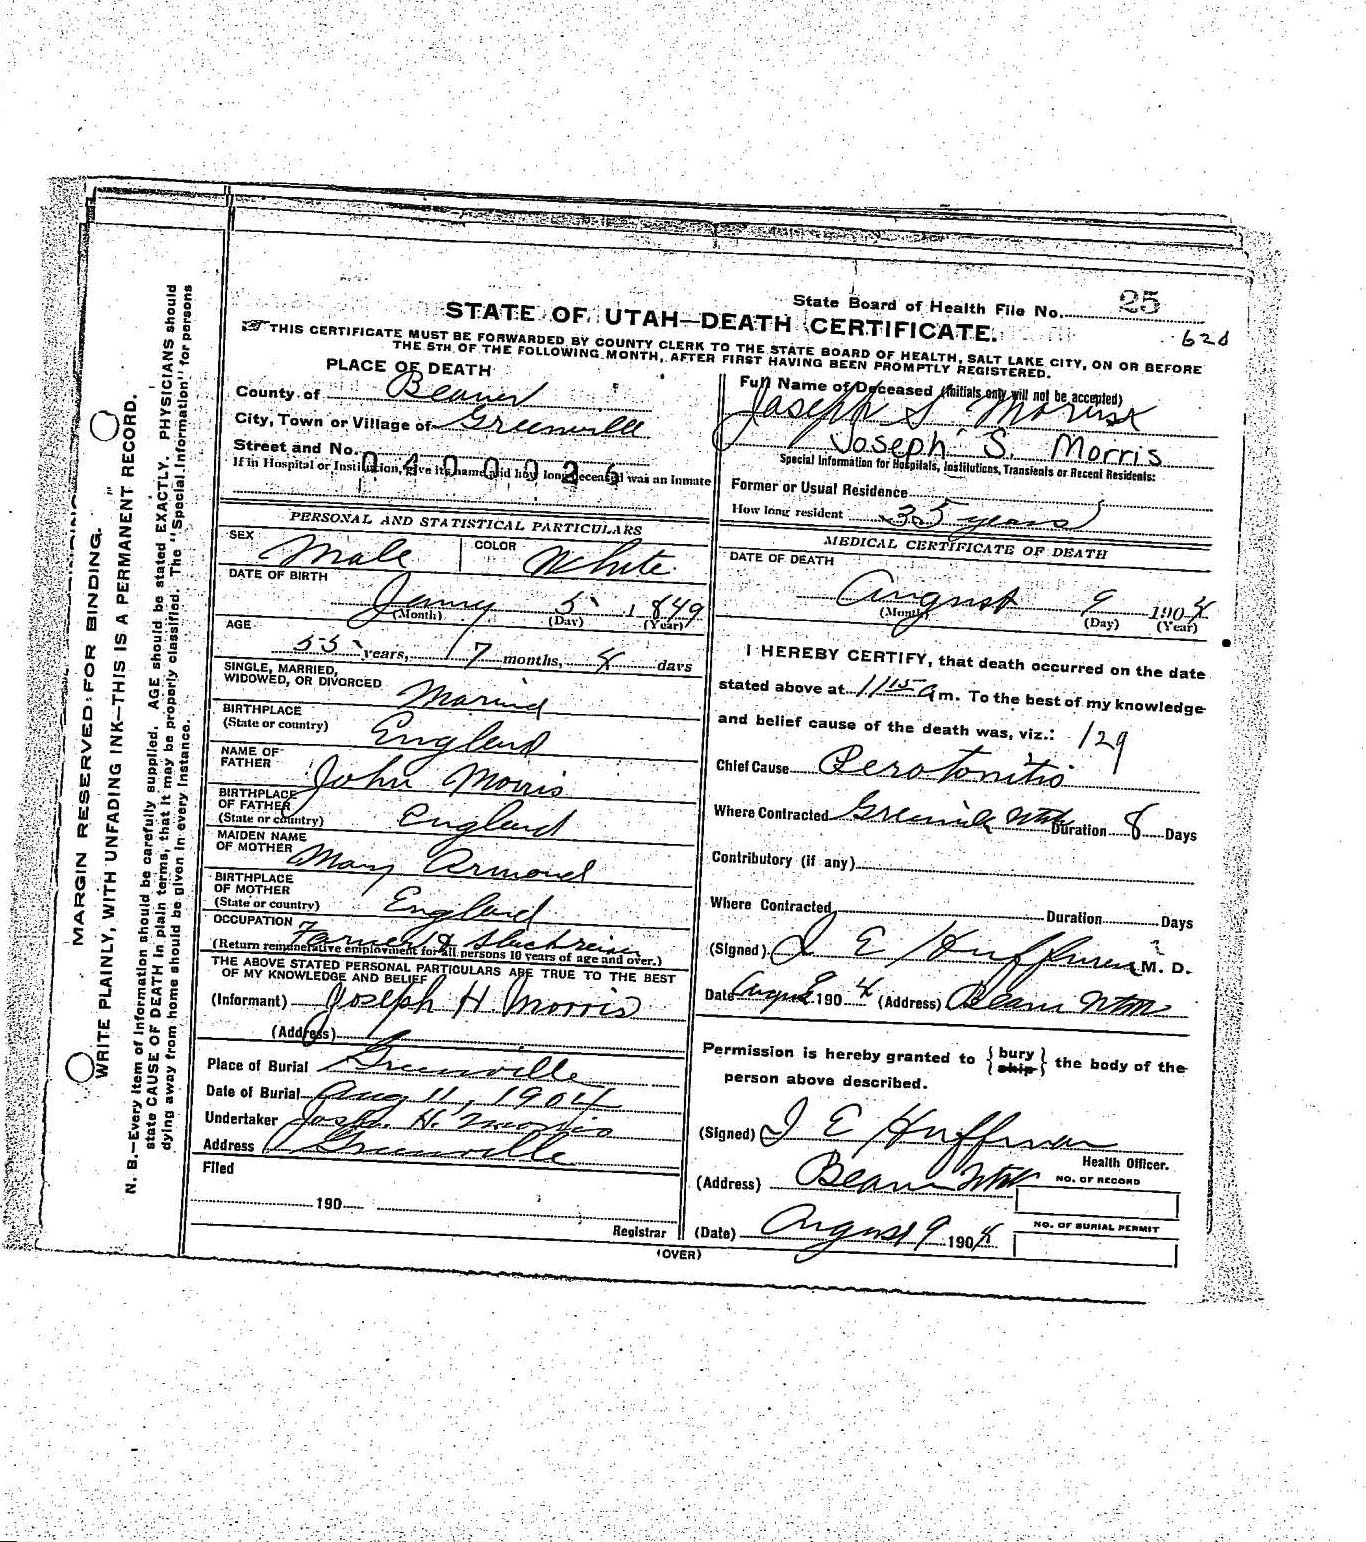 State Board of Health File No. 25
STATE OF UTAH—DEATH CERTIFICATE.
62d
THIS CERTIFICATE MUST BE FORWARDED BY COUNTY CLERK TO THE STATE BOARD OF HEALTH, SALT LAKE CITY, ON OR BEFORE
THE 5TH OF THE FOLLOWING MONTH, AFTER FIRST HAVING BEEN PROMPTLY REGISTERED.
PLACE OF DEATH
County of Beaver
City, Town or Village of Greenville
Street and No.
If in Hospital or Institution, give its name and how long deceased was an inmate
0400026
PERSONAL AND STATISTICAL PARTICULARS
SEX Male COLOR White
DATE OF BIRTH
Janry 5 1849
(Month) (Day) (Year)
AGE
55 years, 7 months, 4 days
SINGLE, MARRIED,
WIDOWED, OR DIVORCED Married
BIRTHPLACE
(State or country) England
NAME OF
FATHER John Morris
BIRTHPLACE
OF FATHER
(State or country) England
MAIDEN NAME
OF MOTHER Mary Armond
BIRTHPLACE
OF MOTHER
(State or country) England
OCCUPATION Farmer &
(Return remunerative employment for all persons 10 years of age and over.)
THE ABOVE STATED PERSONAL PARTICULARS ARE TRUE TO THE BEST
OF MY KNOWLEDGE AND BELIEF
(Informant) Joseph H. Morris
(Address)
Place of Burial Greenville
Date of Burial Aug 11, 1904
Undertaker Jos. H. Morris
Address Greenville
Filed
190
Registrar
Full Name of Deceased (Initials only will not be accepted)
Joseph S.
Joseph S. Morris
Special Information for Hospitals, Institutions, Transients or Recent Residents:
Former or Usual Residence
How long resident 35 years
MEDICAL CERTIFICATE OF DEATH
DATE OF DEATH
August 9 1904
(Month) (Day) (Year)
I HEREBY CERTIFY, that death occurred on the date
stated above at 11 15 a m. To the best of my knowledge
and belief cause of the death was, viz.: 129
Chief Cause Perotonitis
Where Contracted Greenville Utah Duration 8 Days
Contributory (if any)
Where Contracted Duration Days
(Signed) J E Huffman M. D.
Date August 9 1904 (Address) Beaver Utah
Permission is hereby granted to {bury ship} the body of the
person above described.
(Signed) J E Huffman
Health Officer.
(Address) Beaver Utah
NO. OF RECORD
NO. OF BURIAL PERMIT
(Date) August 9 1904
(OVER)
MARGIN RESERVED FOR BINDING.
WRITE PLAINLY, WITH UNFADING INK—THIS IS A PERMANENT RECORD.
N. B.—Every item of information should be carefully supplied. AGE should be stated EXACTLY. PHYSICIANS should
state CAUSE OF DEATH in plain terms, that it may be properly classified. The "Special Information" for persons
dying away from home should be given in every instance.